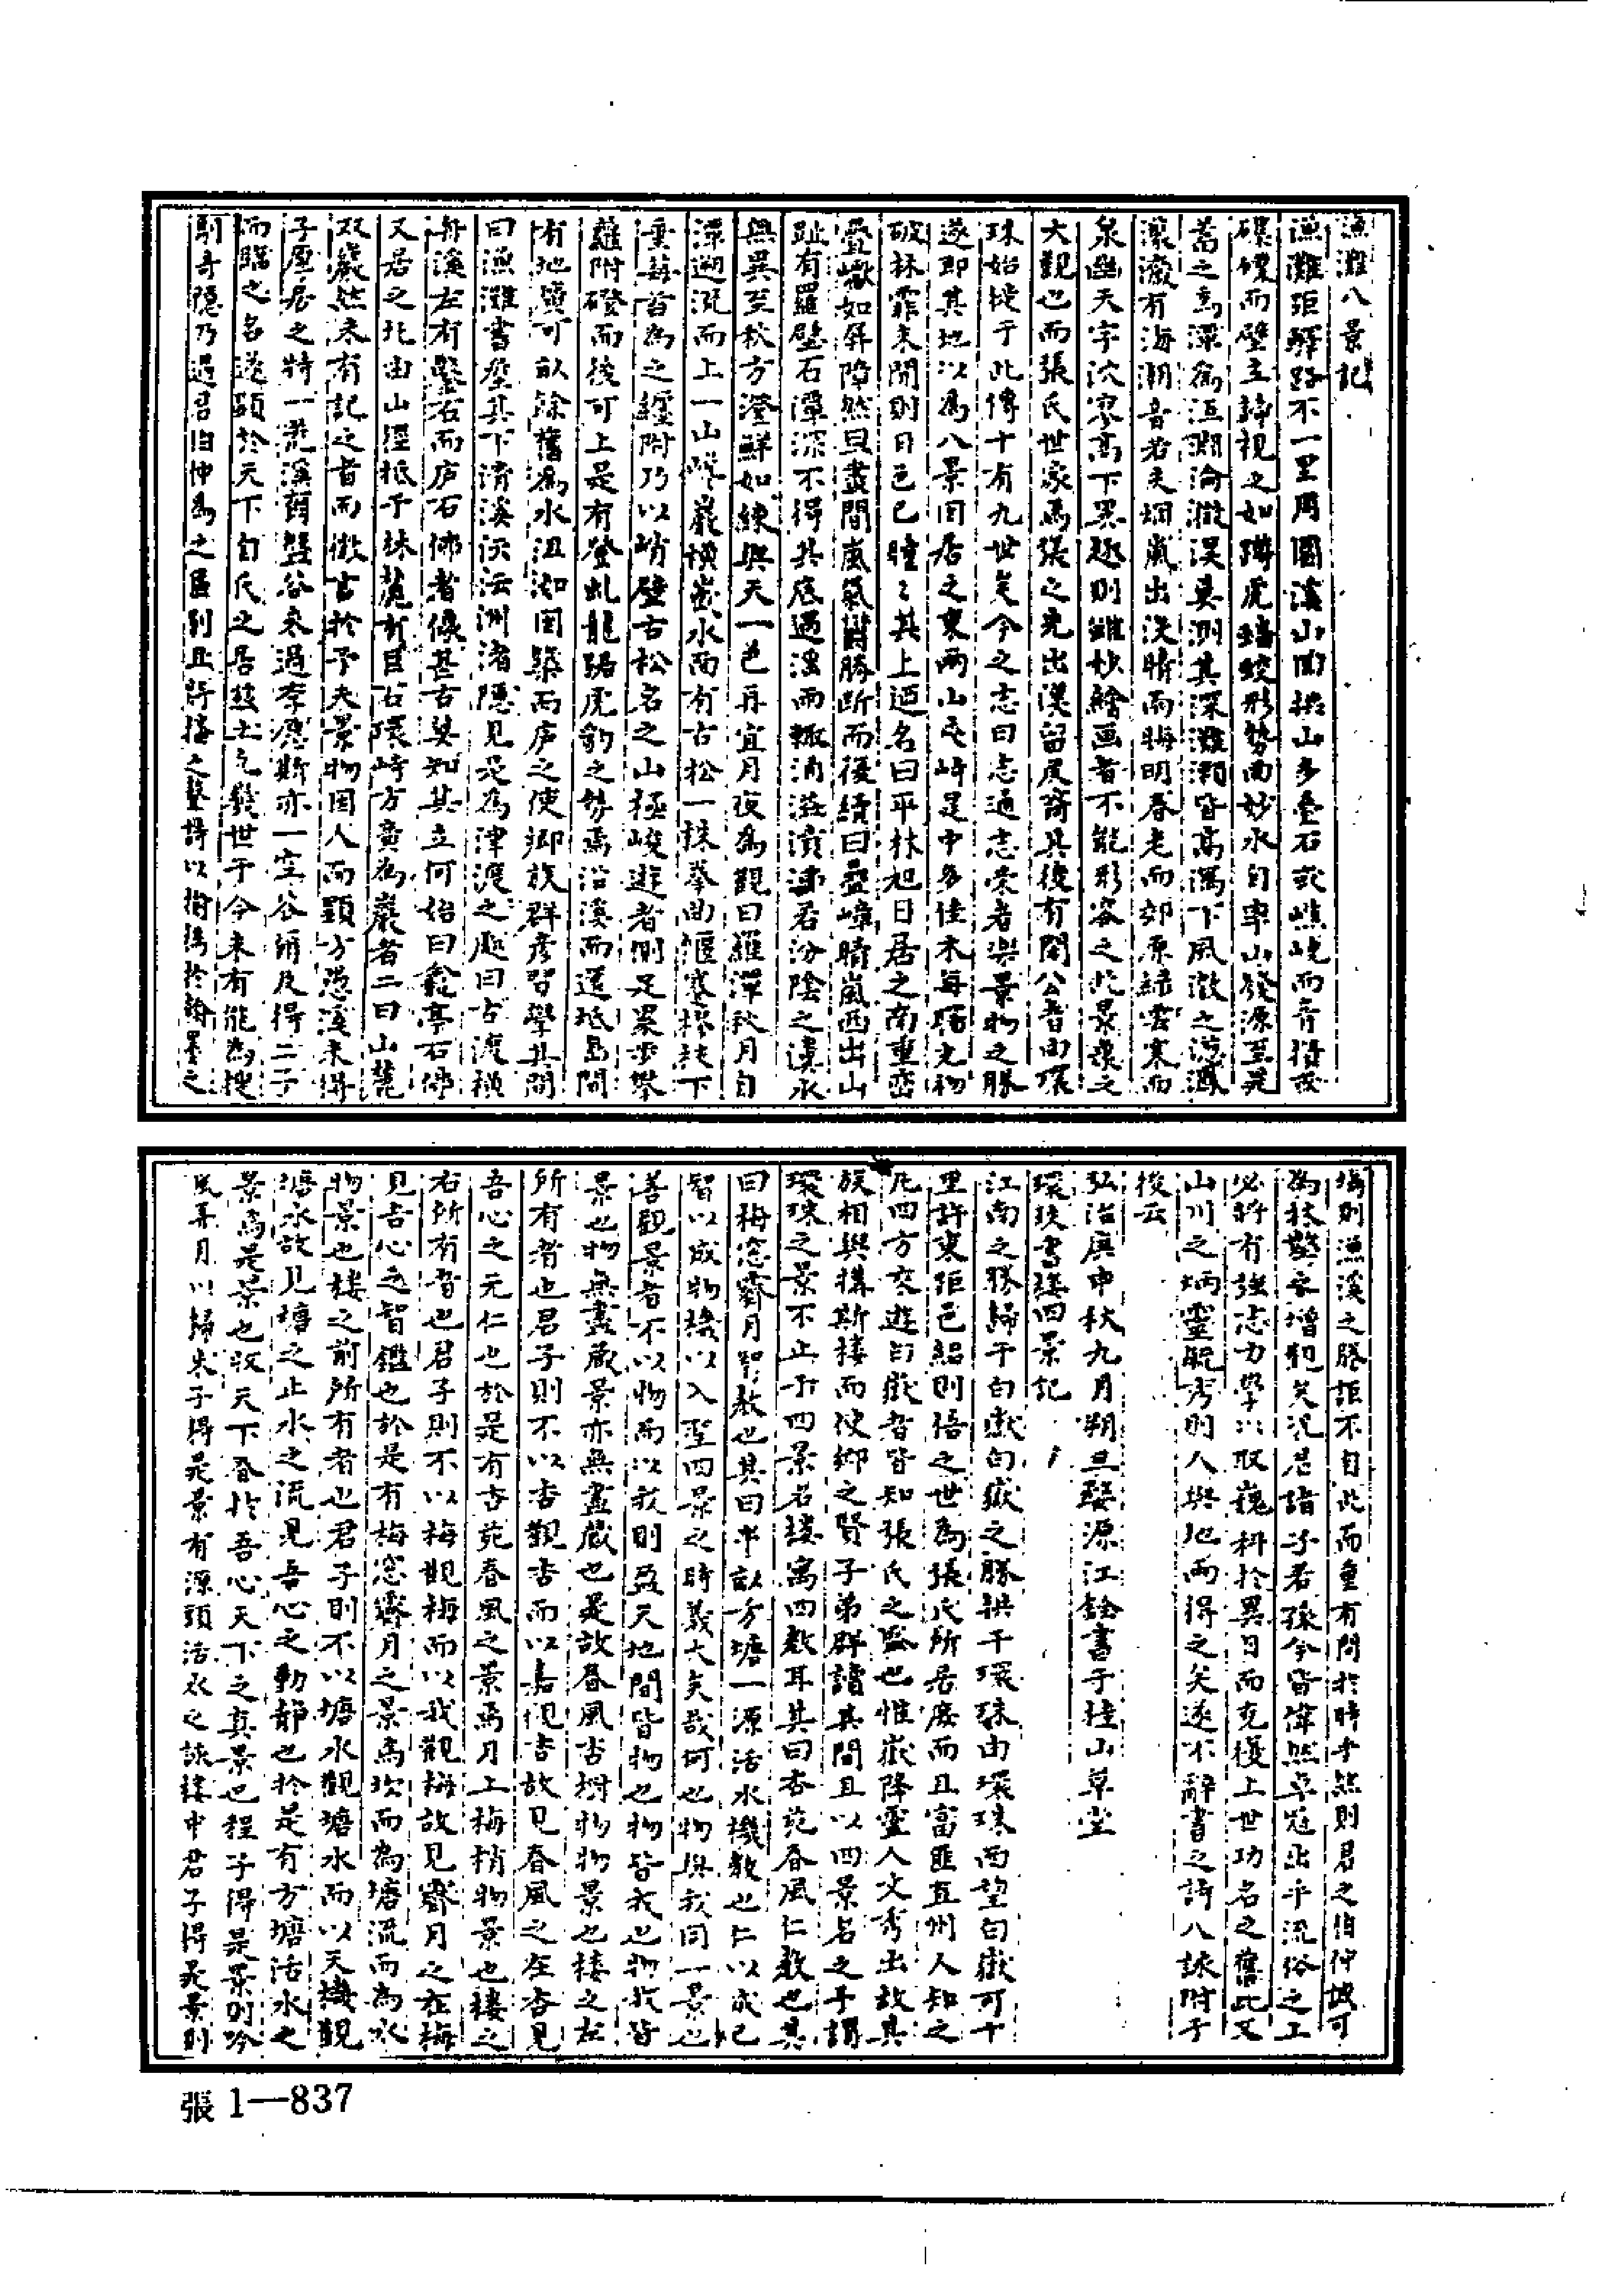 漁灘八景記
漁灘距驛路不一里周圍溪山回拱山多疊石或巉峣而奇怪或
磔磔而壁立諦視之如蹲虎蟠蛟形勢而妙水自率山發源至是
蓄之為潭為汪淵淪漪莫測其深灘瀨皆高瀉下風激之
瀠有海潮音若夫烟嵐出沒晴而晦明春老而郊原綠雲寒而
泉幽天宇泬寥高下異趣則雖妙繪画者不能形容之於景象之
大觀也而張氏世家焉張之先出漢留侯裔其後有閏公者由環
珠始徙于此傳十有九世矣今之志曰志通志榮者樂景物之勝
遂即其地以為八景曰居之東兩山屹峙是中多佳木每曙光初
破林霏未開則日色已曈〻其上迺名曰平林旭日居之南重巒
疊巘如屏障然旦晝間嵐氣鬱勝斷而復續曰疊嶂晴嵐西出山
趾有羅壁石潭深不得其底過溜而輒涌溢濆沸若汾陰之瀵水
無異至秋方澄鮮如練與天一色再宜月夜為觀曰羅潭秋月自
潭遡流而上一山巉巖橫嵌水而有古松一株拳曲偃蹇樛枝下
垂莓苔為之纏附乃以峭壁古松名之山極峻遊者側足累步攀
蘿附磴而後可上是有登虬龍踞虎豹之勢焉沿溪而邐坻島間
有地壙可畝餘舊為水沮洳因築而庐之使鄉族群彥習學其間
曰漁灘書屋其下清溪沄沄洲渚隱見是為津渡之處曰古渡橫
舟溪左有鑿石而庐石佛者像甚古莫知其立何始曰龕亭石佛
又居之北由山徑抵于林麓有巨石環峙方廣為巖者二曰山麓
双巖然未有記之者而徵言於予夫景物因人而顯方愚溪未得
子厚居之特一荒溪爾盤谷未過李愿斯亦一空谷爾及得二子
而賜之名遂顯於天下自氏之居茲土凢幾世于今未有能為搜
剔奇隱乃遇君伯仲為之區別且將播之聲詩以揄揚於翰墨之
塲則漁溪之勝詎不自此而重有聞於時乎然則君之伯仲誠可
為林壑永增觀矣況思諸子若孫今皆偉然卓冠出乎流俗之上
必將有強志力學以取巍科於異日而克復上世功名之舊此又
山川之炳靈毓秀則人與地兩得之矣遂不辭書之詩八詠附于
後云
弘治庚申秋九月朔旦婺源江銓書于桂山草堂
環珠書樓四景記
江南之勝歸于白嶽白嶽之勝拱于環珠由環珠西望白嶽可十
里許東距邑紹則倍之世為張氏所居庶而且富匪直州人知之
凢四方交遊白嶽者皆知張氏之盛也惟嶽降靈人文秀出故其
族相與搆斯樓而使鄉之賢子弟群讀其間且以四景名之予謂
環珠之景不止于四景名樓寓四教耳其曰杏苑春風仁教也其
曰梅窓霽月智教也其曰半畝方塘一源活水機教也仁以成己
智以成物機以入聖四景之時義大矣哉何也物與我同一景也
善觀景者不以物而以我則盈天地間皆物也物皆我也物我皆
景也物無盡藏景亦無盡藏也是故春風杏樹物物景也樓之左
所有者也君子則不以杏觀杏而以嘉祝杏故見春風之在杏見
吾心之元仁也於是有杏苑春風之景焉月上梅梢物景也樓之
右所有者也君子則不以梅觀梅而以我觀梅故見霽月之在梅
見吾心之智鑑也於是有梅窓霽月之景焉坎而為塘流而為水
物景也樓之前所有者也君子則不以塘水觀塘水而以天機觀
塘水故見塘之止水之流見吾心之動靜也於是有方塘活水之
景焉是景也收天下春於吾心天下之真景也程子得是景則吟
風弄月以歸朱子得是景有源頭活水之詠樓中君子得是景則
張1—837